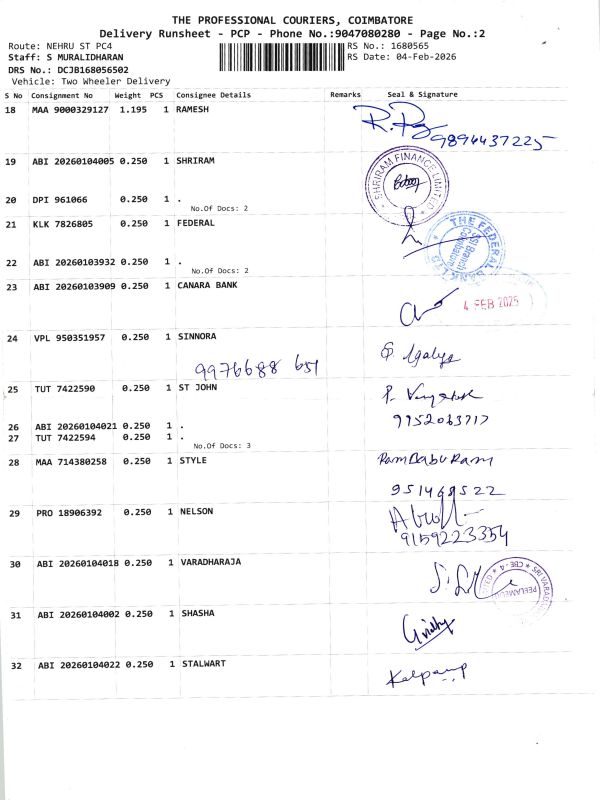 THE PROFESSIONAL COURIERS, COIMBATORE
Delivery Runsheet - PCP - Phone No.:9047080280 - Page No.:2
Route: NEHRU ST PC4
RS No.: 1680565
Staff: S MURALIDHARAN
RS Date: 04-Feb-2026
DRS No.: DCJB168056502
Vehicle: Two Wheeler Delivery
S No Consignment No Weight PCS Consignee Details Remarks Seal & Signature
18 MAA 9000329127 1.195 1 RAMESH
9894437225
19 ABI 20260104005 0.250 1 SHRIRAM
SHRIRAM FINANCE LIMITED
20 DPI 961066 0.250 1 .
No.Of Docs: 2
21 KLK 7826805 0.250 1 FEDERAL
THE FEDERAL BANK LTD
22 ABI 20260103932 0.250 1 .
No.Of Docs: 2
23 ABI 20260103909 0.250 1 CANARA BANK
4 FEB 2025
24 VPL 950351957 0.250 1 SINNORA
9976688 651
25 TUT 7422590 0.250 1 ST JOHN
9952063717
26 ABI 20260104021 0.250 1 .
27 TUT 7422594 0.250 1 .
No.Of Docs: 3
28 MAA 714380258 0.250 1 STYLE
Ram Babu Ram
29 PRO 18906392 0.250 1 NELSON
9159223354
30 ABI 20260104018 0.250 1 VARADHARAJA
CBE-4 * SRI
31 ABI 20260104002 0.250 1 SHASHA
32 ABI 20260104022 0.250 1 STALWART